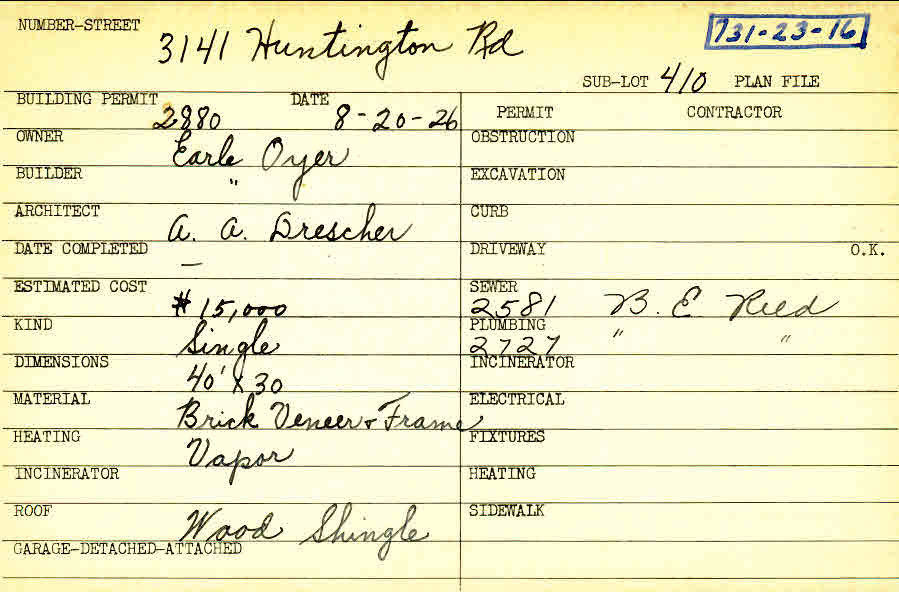 NUMBER-STREET 3141 Huntington Rd 731-23-16
SUB-LOT 410 PLAN FILE
BUILDING PERMIT 2880 DATE 8-20-26 PERMIT CONTRACTOR
OWNER Earle Oyer OBSTRUCTION
BUILDER " EXCAVATION
ARCHITECT A. A. Drescher CURB
DATE COMPLETED — DRIVEWAY O.K.
ESTIMATED COST $15,000 SEWER 2581 B. E. Reed
KIND Single PLUMBING 2727 " "
DIMENSIONS 40' x 30 INCINERATOR
MATERIAL Brick Veneer & Frame ELECTRICAL
HEATING Vapor FIXTURES
INCINERATOR HEATING
ROOF Wood Shingle SIDEWALK
GARAGE-DETACHED-ATTACHED